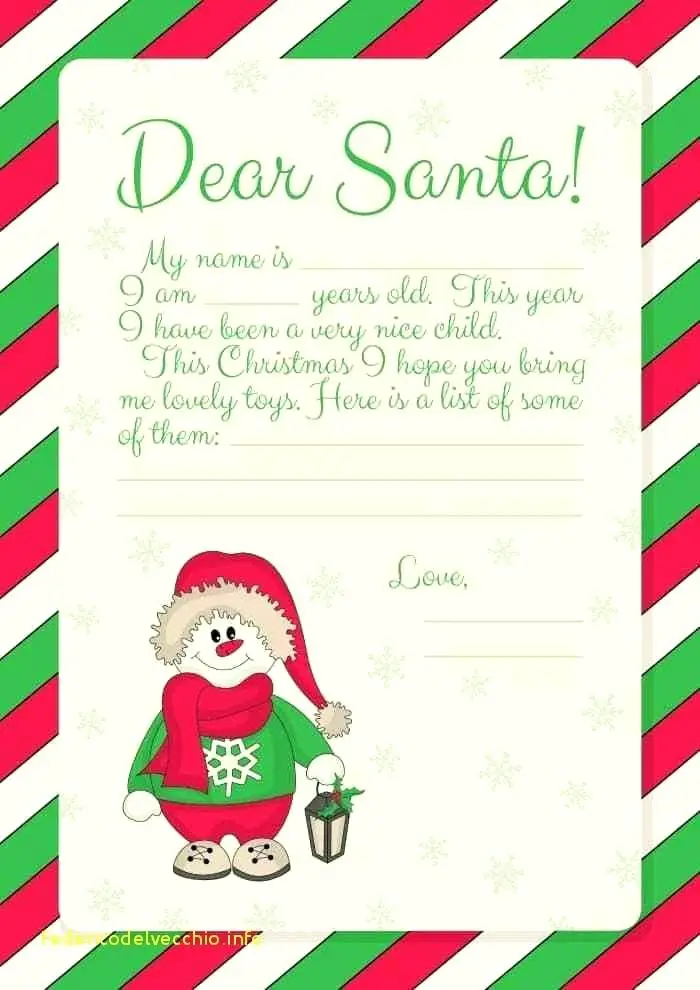 Dear Santa!
My name is
I am years old. This year
I have been a very nice child.
This Christmas I hope you bring
me lovely toys. Here is a list of some
of them:
Love,
federicodelvecchio.info